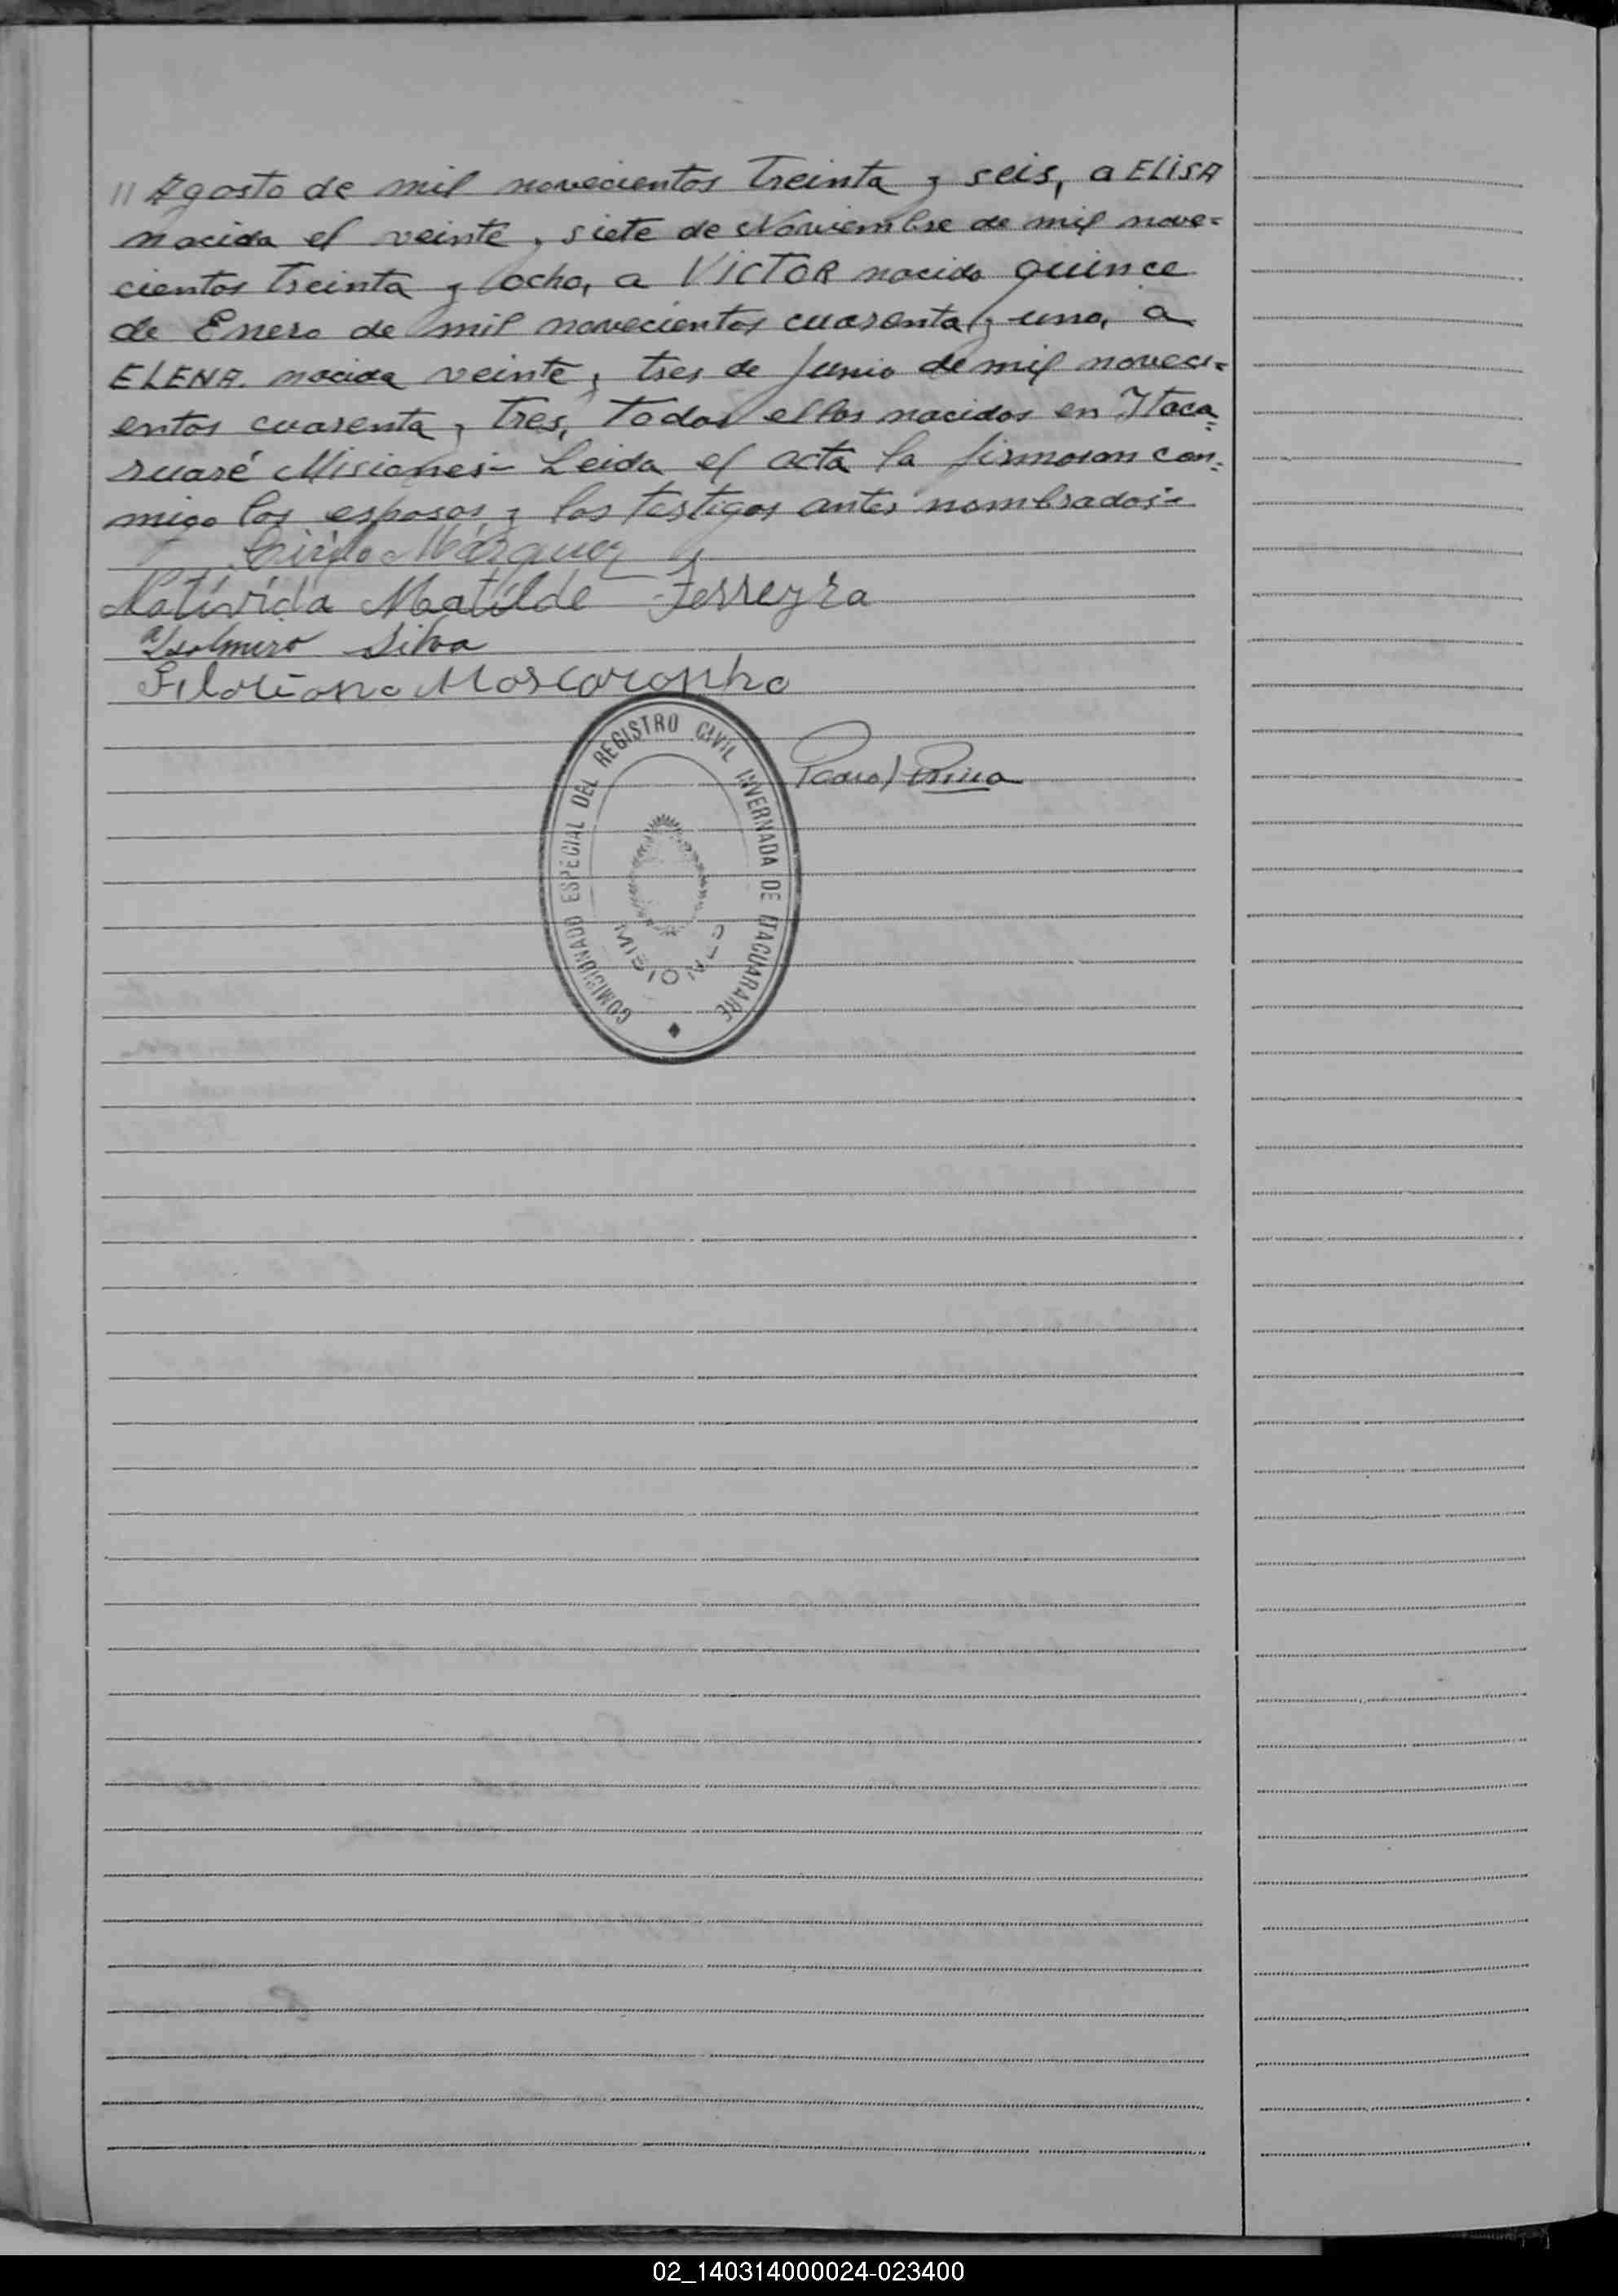 // Agosto de mil novecientos treinta y seis, a ELISA
nacida el veinte y siete de Noviembre de mil nove=
cientos treinta y ocho, a VICTOR nacido quince
de Enero de mil novecientos cuarenta y uno, a
ELENA. nacida veinte y tres de Junio de mil noveci=
entos cuarenta y tres, todos ellos nacidos en Itaca=
ruaré Misiones- Leida el acta la firmaron con=
migo los esposos y los testigos antes nombrados:-
Cirilo Márquez
Natívida Matilde Ferreyra
Silva
COMISIONADO ESPECIAL DEL REGISTRO CIVIL INVERNADA DE ITACUARARE
MISIONES
02_140314000024-023400